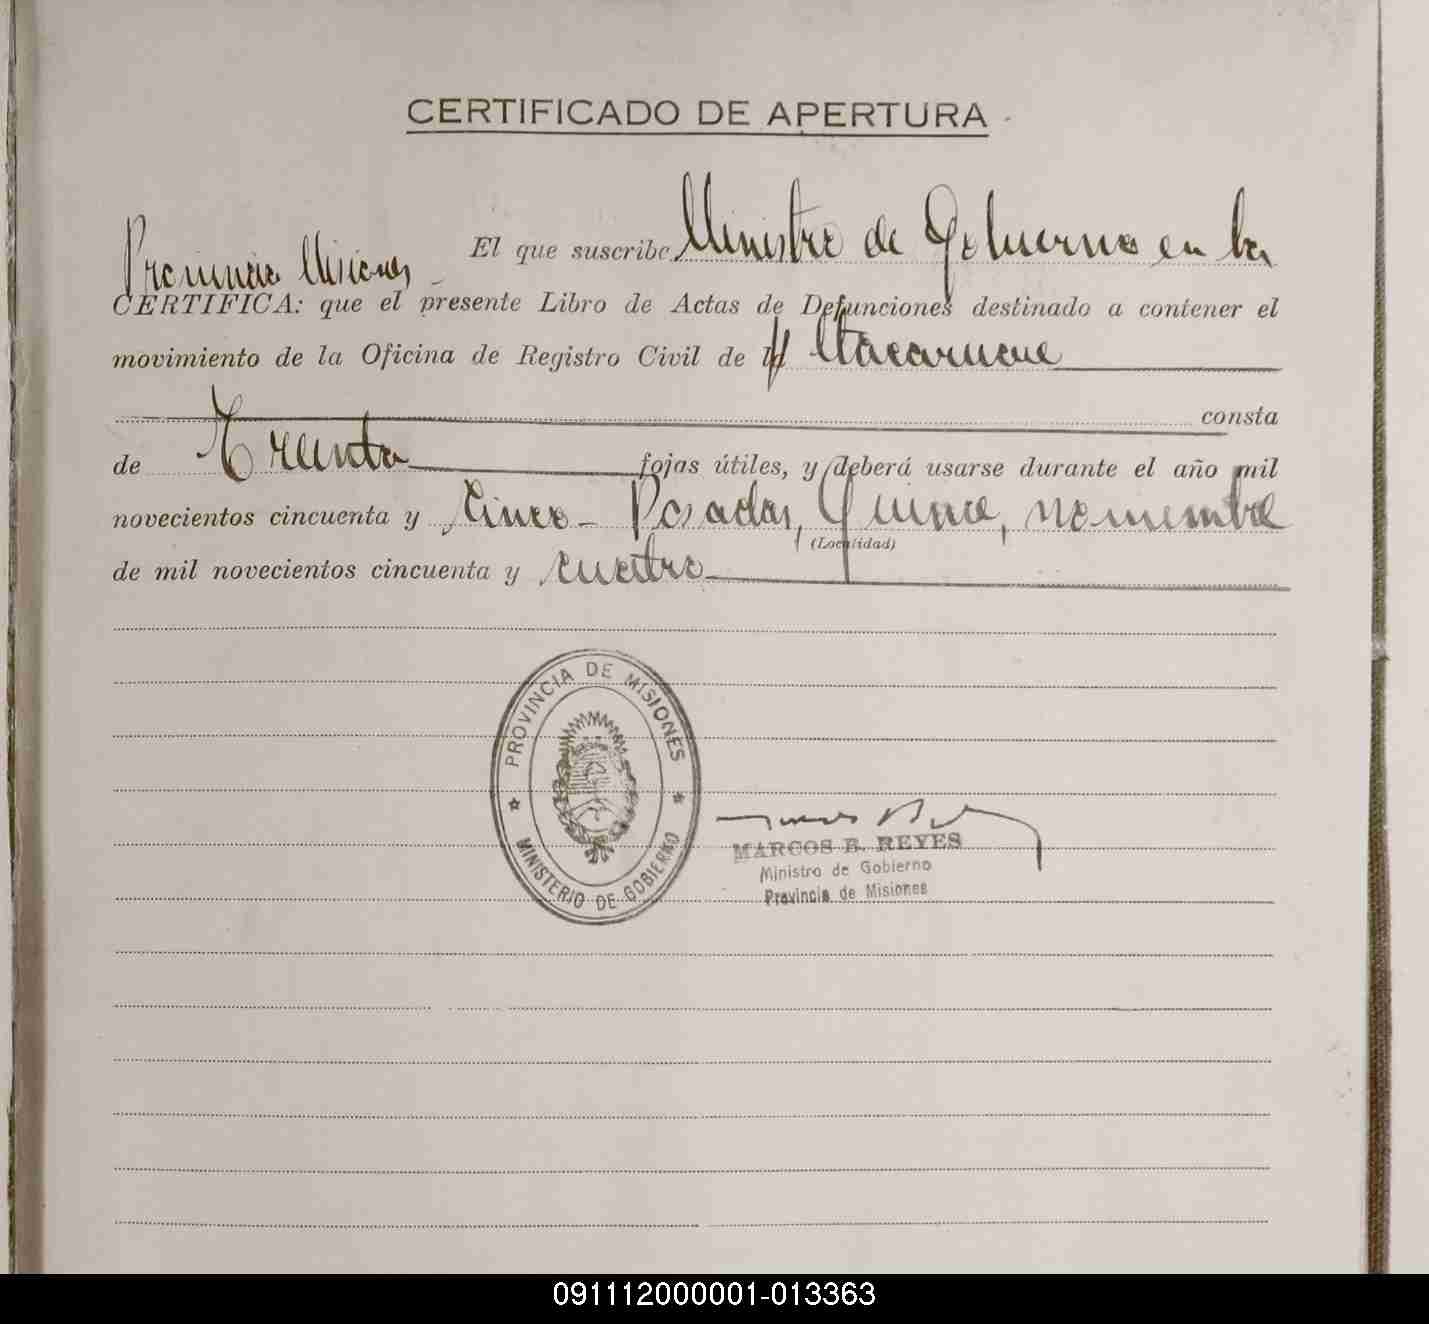 CERTIFICADO DE APERTURA
El que suscribe Ministro de Gobierno en la
Provincia Misiones
CERTIFICA: que el presente Libro de Actas de Defunciones destinado a contener el
movimiento de la Oficina de Registro Civil de Itacaruaré
consta
de Treinta fojas útiles, y deberá usarse durante el año mil
novecientos cincuenta y cinco - Posadas, Quince, noviembre
(Localidad)
de mil novecientos cincuenta y cuatro
PROVINCIA DE MISIONES
MINISTERIO DE GOBIERNO
MARCOS B. REYES
Ministro de Gobierno
Provincia de Misiones
091112000001-013363